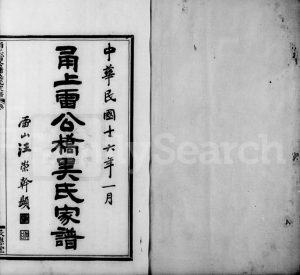 中華民國十六年一月
甬上雷公橋吳氏家譜
雷山汪崇幹題
FamilySearch